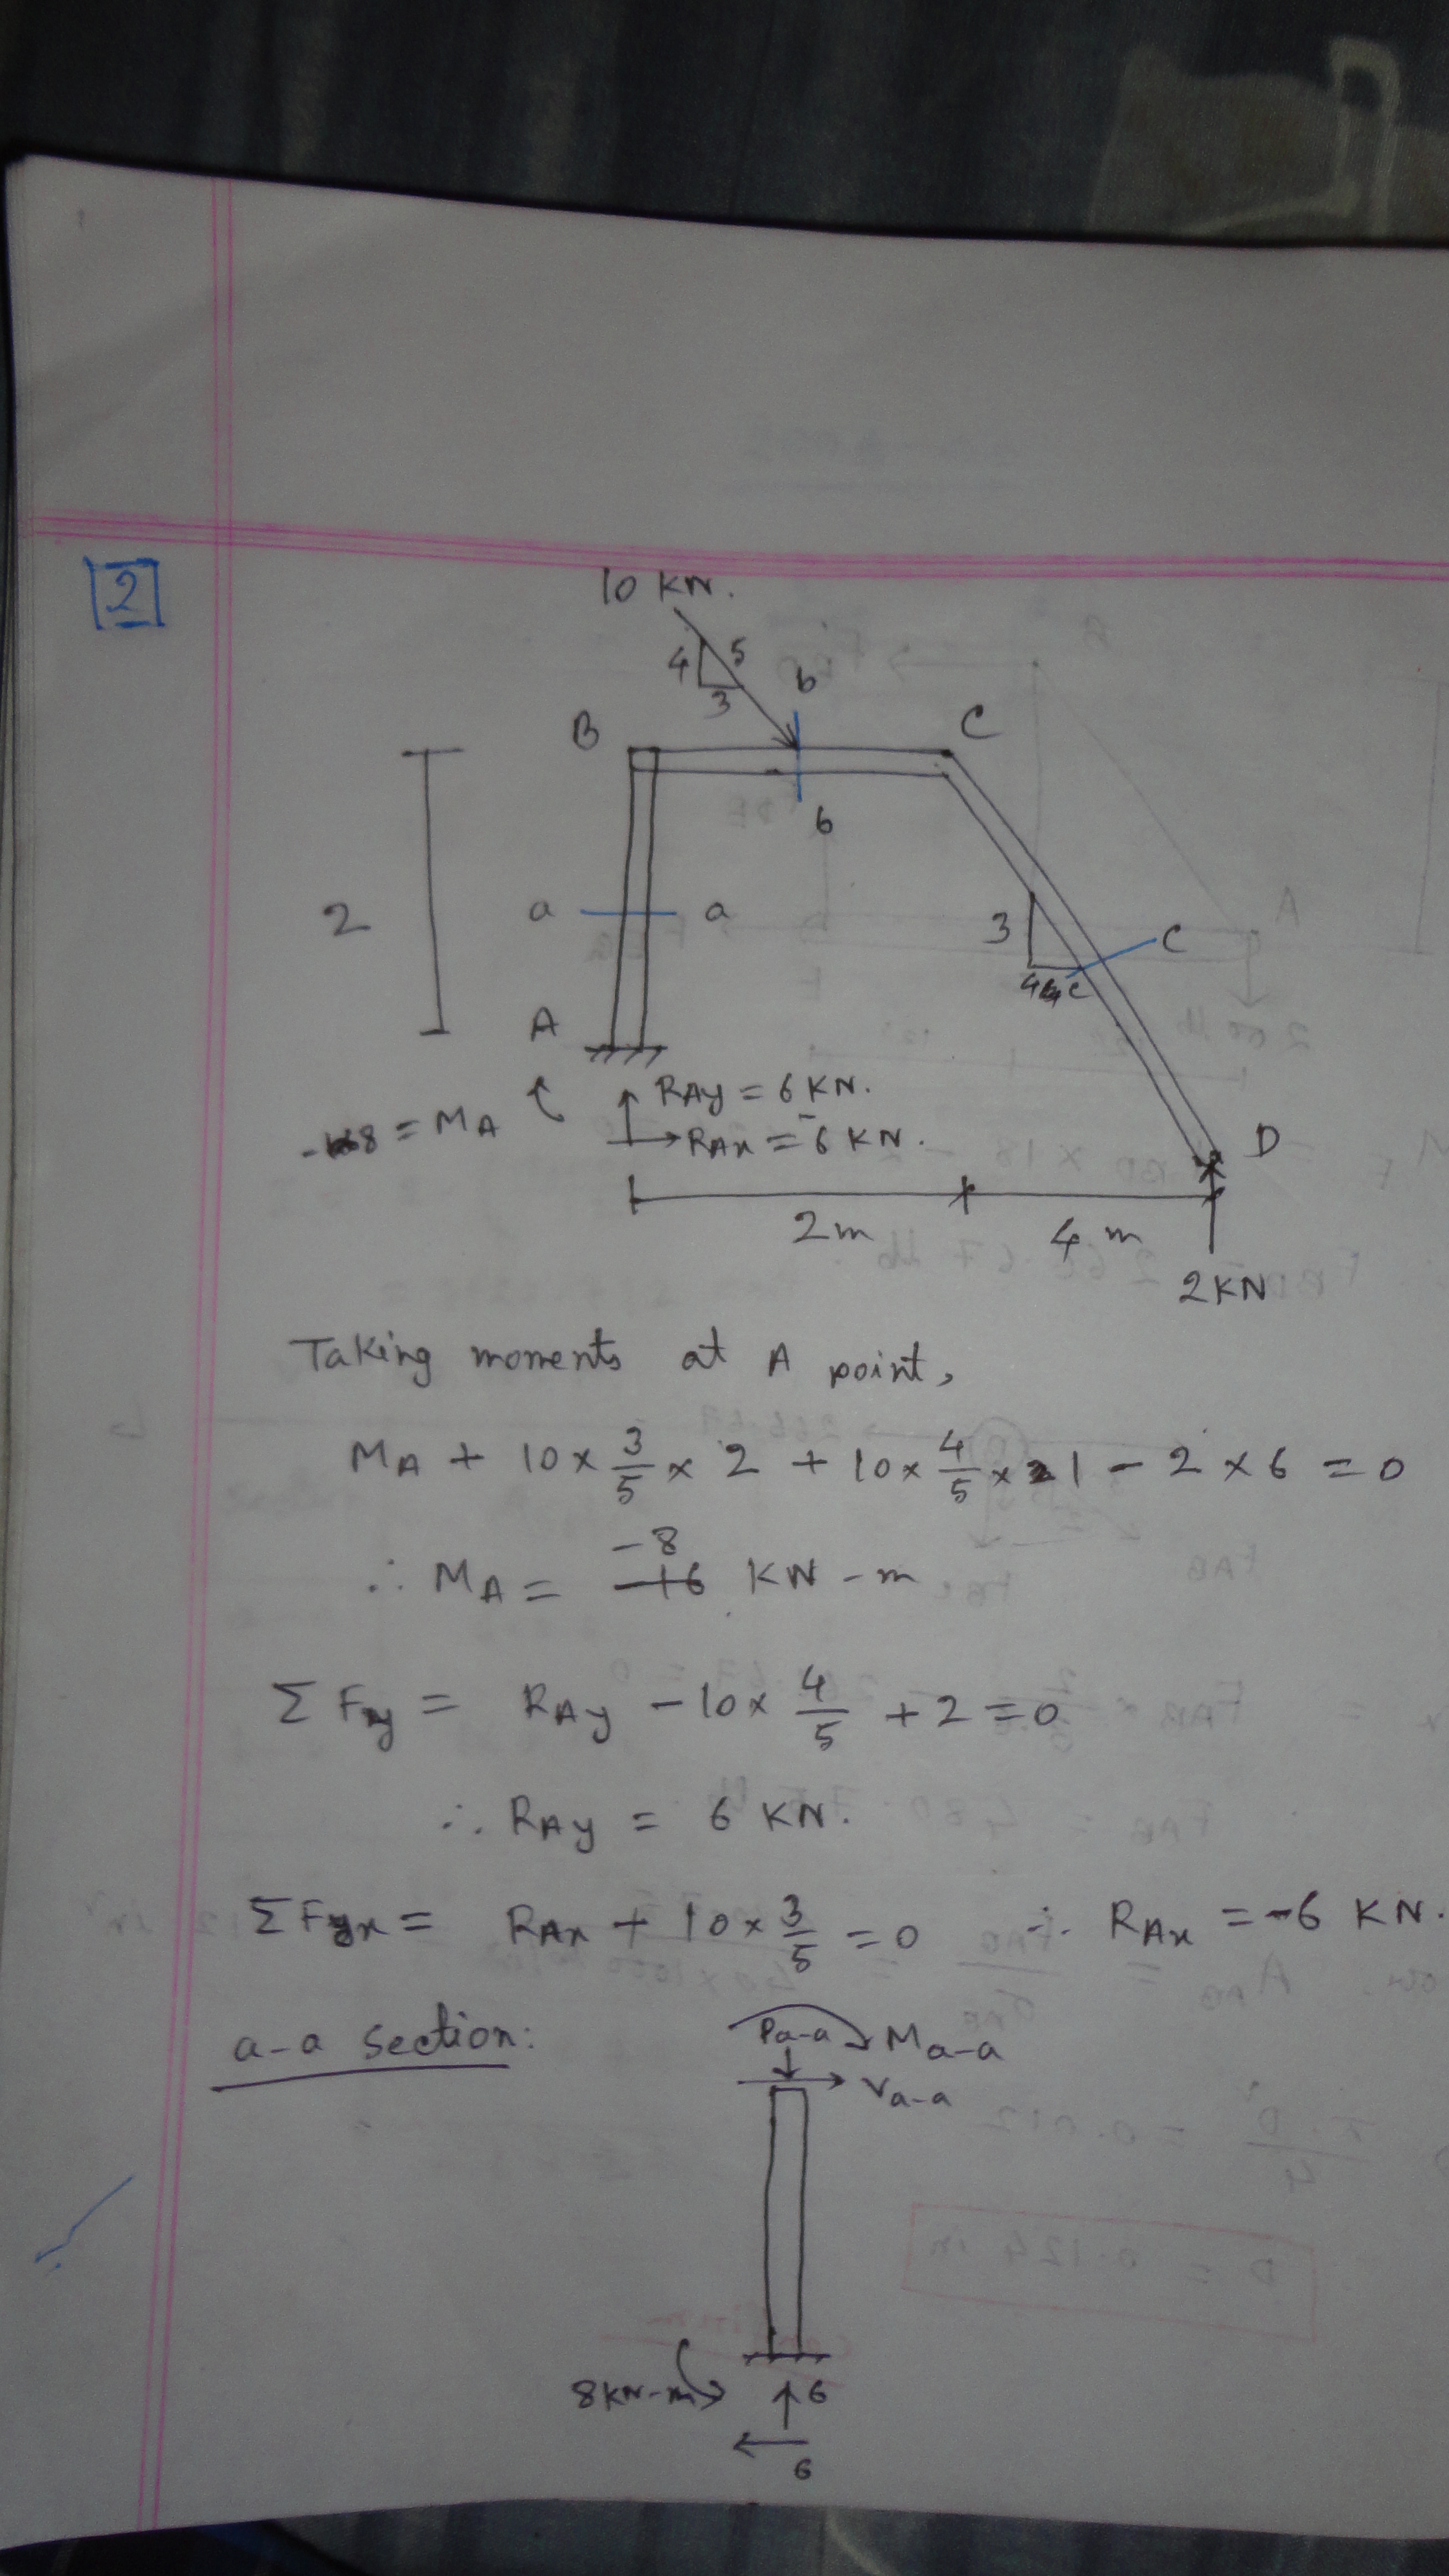 2
10 KN.
4 5
3
b
B
C
2
a a
b
3
C
A
RAy = 6 KN.
= MA
RAx = -6 KN.
D
2m 4 m
2KN
Taking moments at A point,
MA + 10 x 3/5 x 2 + 10 x 4/5 x 1 - 2 x 6 = 0
-8
∴ MA = -16 KN-m
Σ Fy = RAy - 10 x 4/5 + 2 = 0
∴ RAy = 6 KN.
Σ Fx = RAx + 10 x 3/5 = 0 ∴ RAx = -6 KN.
a-a section:
Pa-a Ma-a
Va-a
8KN-m 6
6